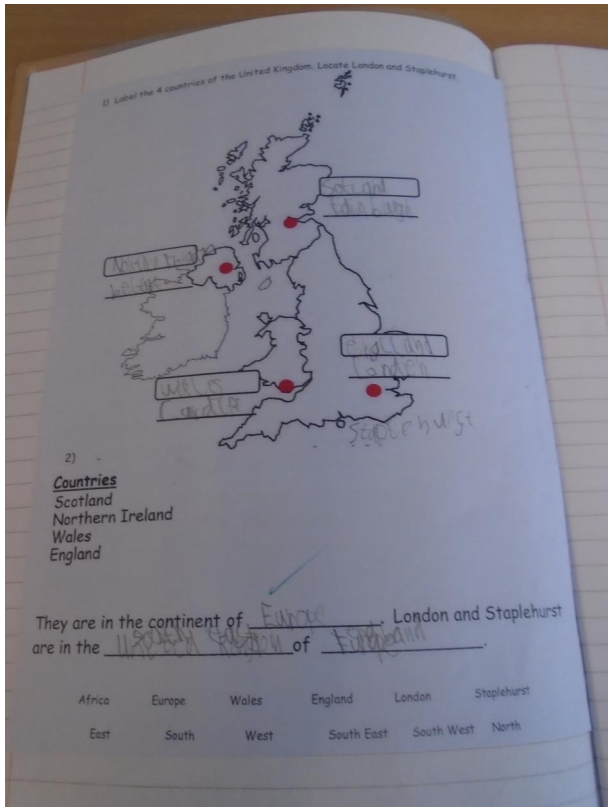 1) Label the 4 countries of the United Kingdom. Locate London and Staplehurst.
Scotland
Edinburgh
belfast
England
London
Wales
Cardiff
Staplehurst
2)
Countries
Scotland
Northern Ireland
Wales
England
They are in the continent of Europe. London and Staplehurst
are in the of .
Africa Europe Wales England London Staplehurst
East South West South East South West North